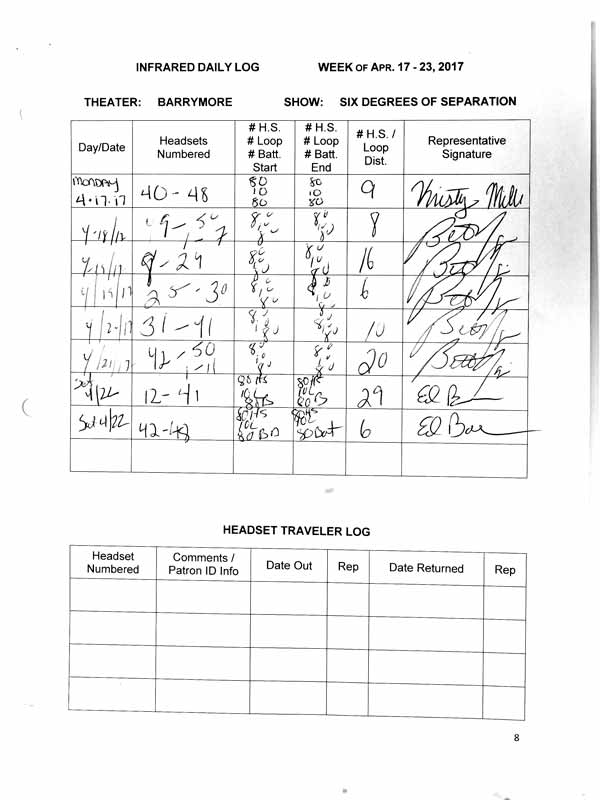 INFRARED DAILY LOG WEEK OF APR. 17 - 23, 2017
THEATER: BARRYMORE SHOW: SIX DEGREES OF SEPARATION
Day/Date
Headsets
Numbered
# H.S.
# Loop
# Batt.
Start
# H.S.
# Loop
# Batt.
End
# H.S. /
Loop
Dist.
Representative
Signature
MONDAY
4.17.17
40 - 48
80
10
80
80
10
80
9
Kristy Mill
4-18/17
1 - 7
80
10
80
80
10
80
8
9 - 24
80
10
80
80
10
80
16
4/19/17
25 - 30
80
10
80
80
10
80
6
4/20/17
31 - 41
80
10
80
80
10
80
10
4/21/17
42 - 50
1 - 11
80
10
80
80
10
80
20
Sat
4/22
12 - 41
80 HS
10L
80 B
80 HS
10L
80 B
29
Ed B
Sat 4/22
42 - 48
80 HS
10L
80 BA
80 HS
10L
80 Bat
6
Ed Bae
HEADSET TRAVELER LOG
Headset
Numbered
Comments /
Patron ID Info
Date Out
Rep
Date Returned
Rep
8